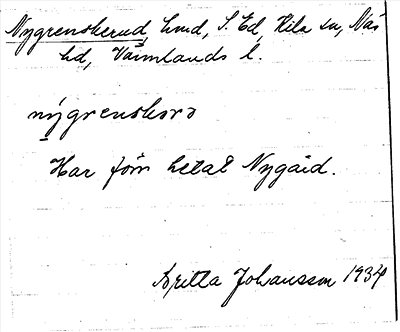 Nygrenskerud, hmd, S. Ed, Kila sn, Näs
hd, Värmlands l.
nygrenskerə
Har förr hetat Nygård.
Britta Johansson 1934